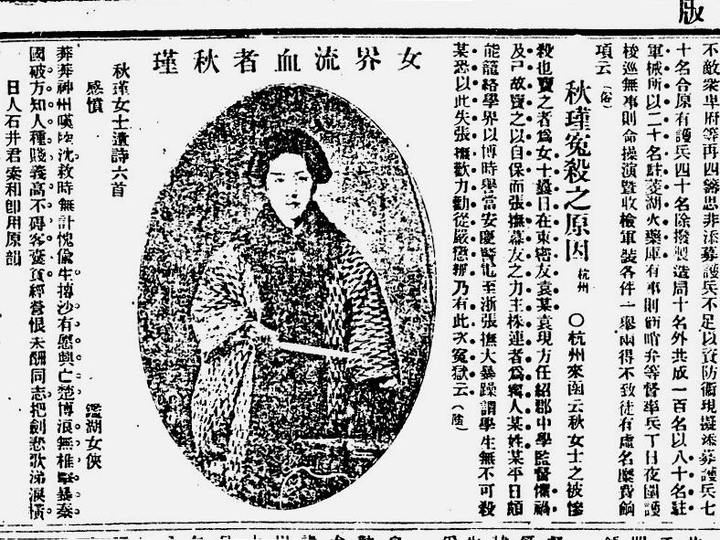 版
不敵衆卑府等再四籌思非添募護兵不足以資防衛現擬添募護兵七
十名合原有護兵四十名除撥製造局十名外共成一百名以八十名駐
軍械所以二十名駐菱湖火藥庫有事則飭哨弁等督率兵丁日夜圍護
梭巡無事則命操演暨收檢軍裝各件一舉兩得不致徒有虛名糜費餉
項云
秋瑾冤殺之原因
杭州
〇杭州來函云秋女士之被慘
殺也實之者爲女士議日在東密友袁某袁現方任紹郡中學監督懼禍
及己故賣之以自保而張撫幕友之力主株連者爲某人某姓某平日頗
能籠絡學界以博時譽當安慶警電至浙張撫大暴躁謂學生無不可殺
某恐以此失張撫歡力勸從嚴懲辦乃有此次冤獄云
女界流血者秋瑾
秋瑾女士遺詩六首
感憤
鑑湖女俠
莽莽神州嘆陸沈救時無計愧偸生摶沙有愿興亡楚博浪無椎擊暴秦
國破方知人種賤義高不碍客囊貧經營恨未酬同志把劍悲歌涕淚橫
日人石井君索和卽用原韻